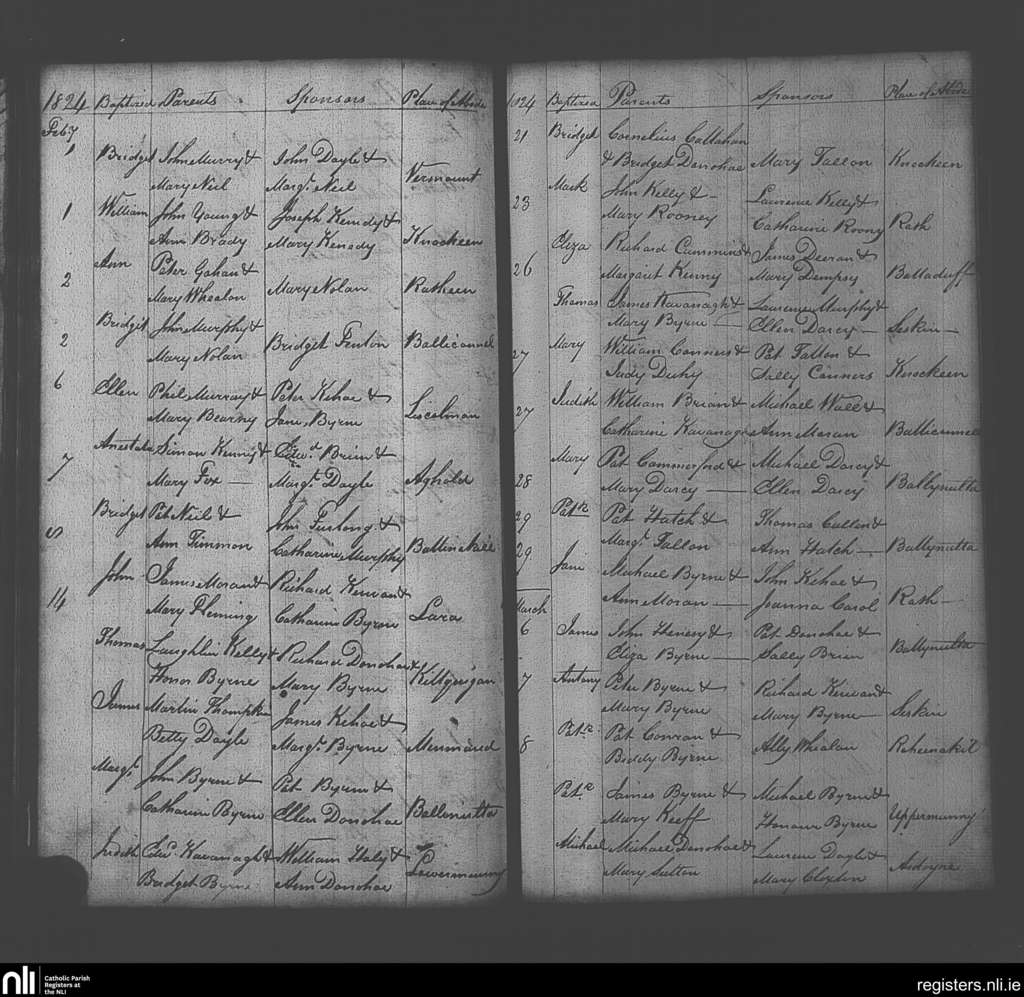 1824 Baptized Parents Sponsors Place of Abode
Feby
1 Bridget John Murry & John Doyle &
Mary Neil Margt. Neil Vermount
1 William John Young & Joseph Kenedy &
Ann Brady Mary Kenedy Knockeen
Ann Peter Gahan &
2 Mary Whealon Mary Nolan Ratheen
Bridget John Murphy &
2 Mary Nolan Bridget Fenton Balliconnel
6 Ellen Phil Murray & Peter Kehoe &
Mary Bearny Jane Byrne Liscolman
Anestatia Simon Kenny & Edwd. Brien &
7 Mary Fox — Margt. Doyle Aghold
Bridget Pat Neil & John Furlong &
8 Ann Timmon Catharine Murphy
John James Moran & Richard Kerwan &
14 Mary Fleming Catharine Byrne Lara
Thomas Laughlin Kelly & Richard Donohoe &
Honor Byrne Mary Byrne
James Martin James Kehoe &
Betty Doyle Margt. Byrne
Margt. John Byrne & Pat Byrne &
Catharine Byrne Ellen Donohoe Ballynutta
Judith Edwd. Kavanagh & William Haly &
Bridget Byrne Ann Donohoe Lowermunny
1824 Baptized Parents Sponsors Place of Abode
21 Bridget Cornelius Callahan
& Bridget Donohoe Mary Fallon Knockeen
Mark John Kelly & — Laurence Kelly &
23 Mary Rooney Catharine Roony Rath
Eliza Richard Cummins & James Deeran &
26 Margaret Kenny Mary Dempsy Balladuff
Thomas James Kavanagh & Laurence Murphy &
Mary Byrne — Ellen Darcy — Seskin —
27 Mary William Connors & Pat Fallon &
Judy Duhy Sally Connors Knockeen
27 Judith William Brian & Michael Wall &
Catharine Kavanagh Ann Moran Balliconnell
Mary Pat Commerford & Michael Darcy &
28 Mary Darcy — Ellen Darcy Ballynutta
29 Patk. Pat Hatch & Thomas Cullen &
Margt. Fallon Ann Hatch — Ballynutta
29 Jane Michael Byrne & John Kehoe &
Ann Moran — Joanna Carol Rath —
March
6 James John Henesy & Pat Donohoe &
Eliza Byrne — Sally Brien Ballynutta
7 Antony Peter Byrne & Richard Kerwan &
Mary Byrne Mary Byrne — Seskin
8 Patk. Pat Conran & Ally Whealan Raheenakit
Biddy Byrne
Patk. James Byrne & Michael Byrne &
Mary Keeff Honour Byrne Uppermunny
Michael Michael Donohoe & Laurence Doyle &
Mary Sutton Mary Cloxten Ardoyne
nli Catholic Parish
Registers at
the NLI
registers.nli.ie